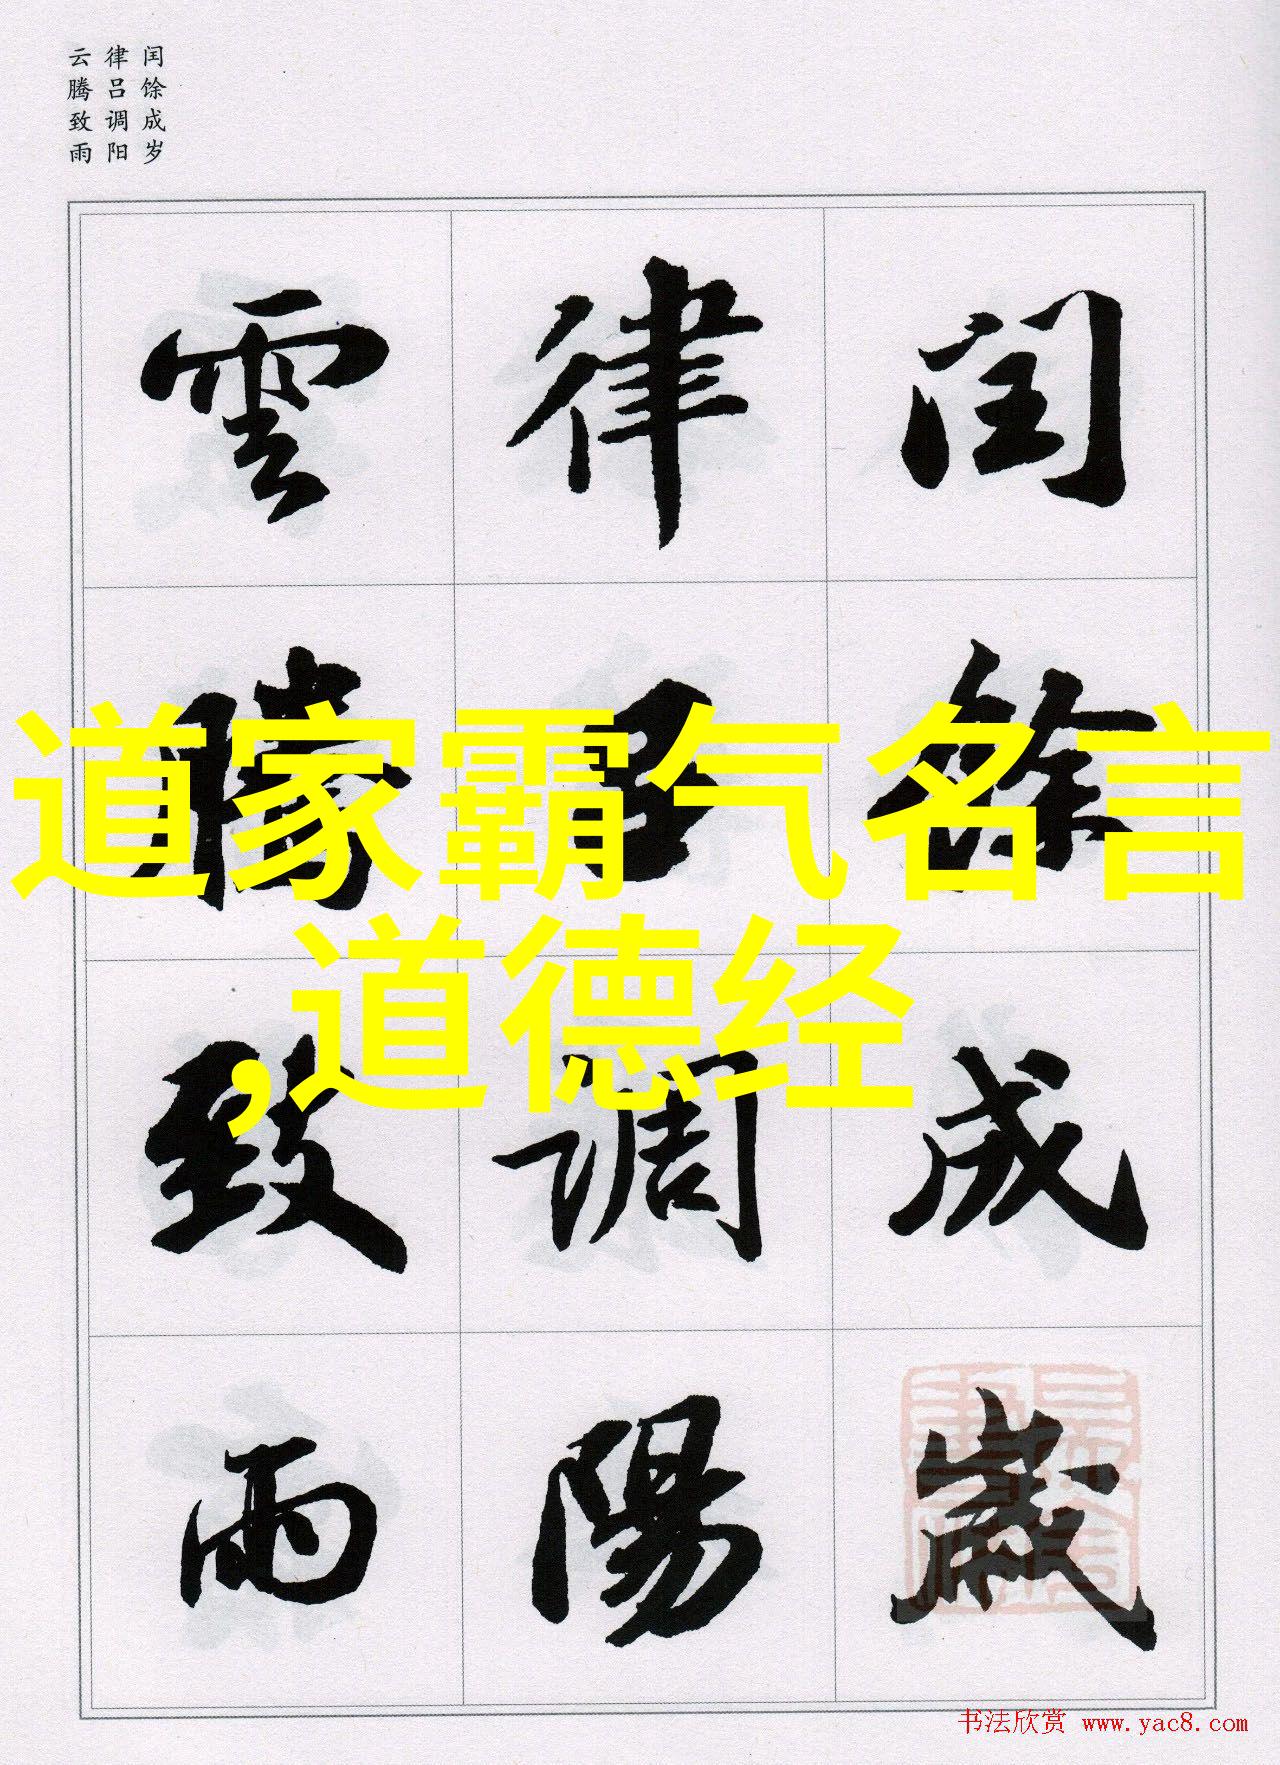 闰馀成岁
律吕调阳
云腾致雨
閏餘成歲
律吕調陽
雲騰致雨
道家霸气名言
,道德经
书法欣赏 www.yac8.com